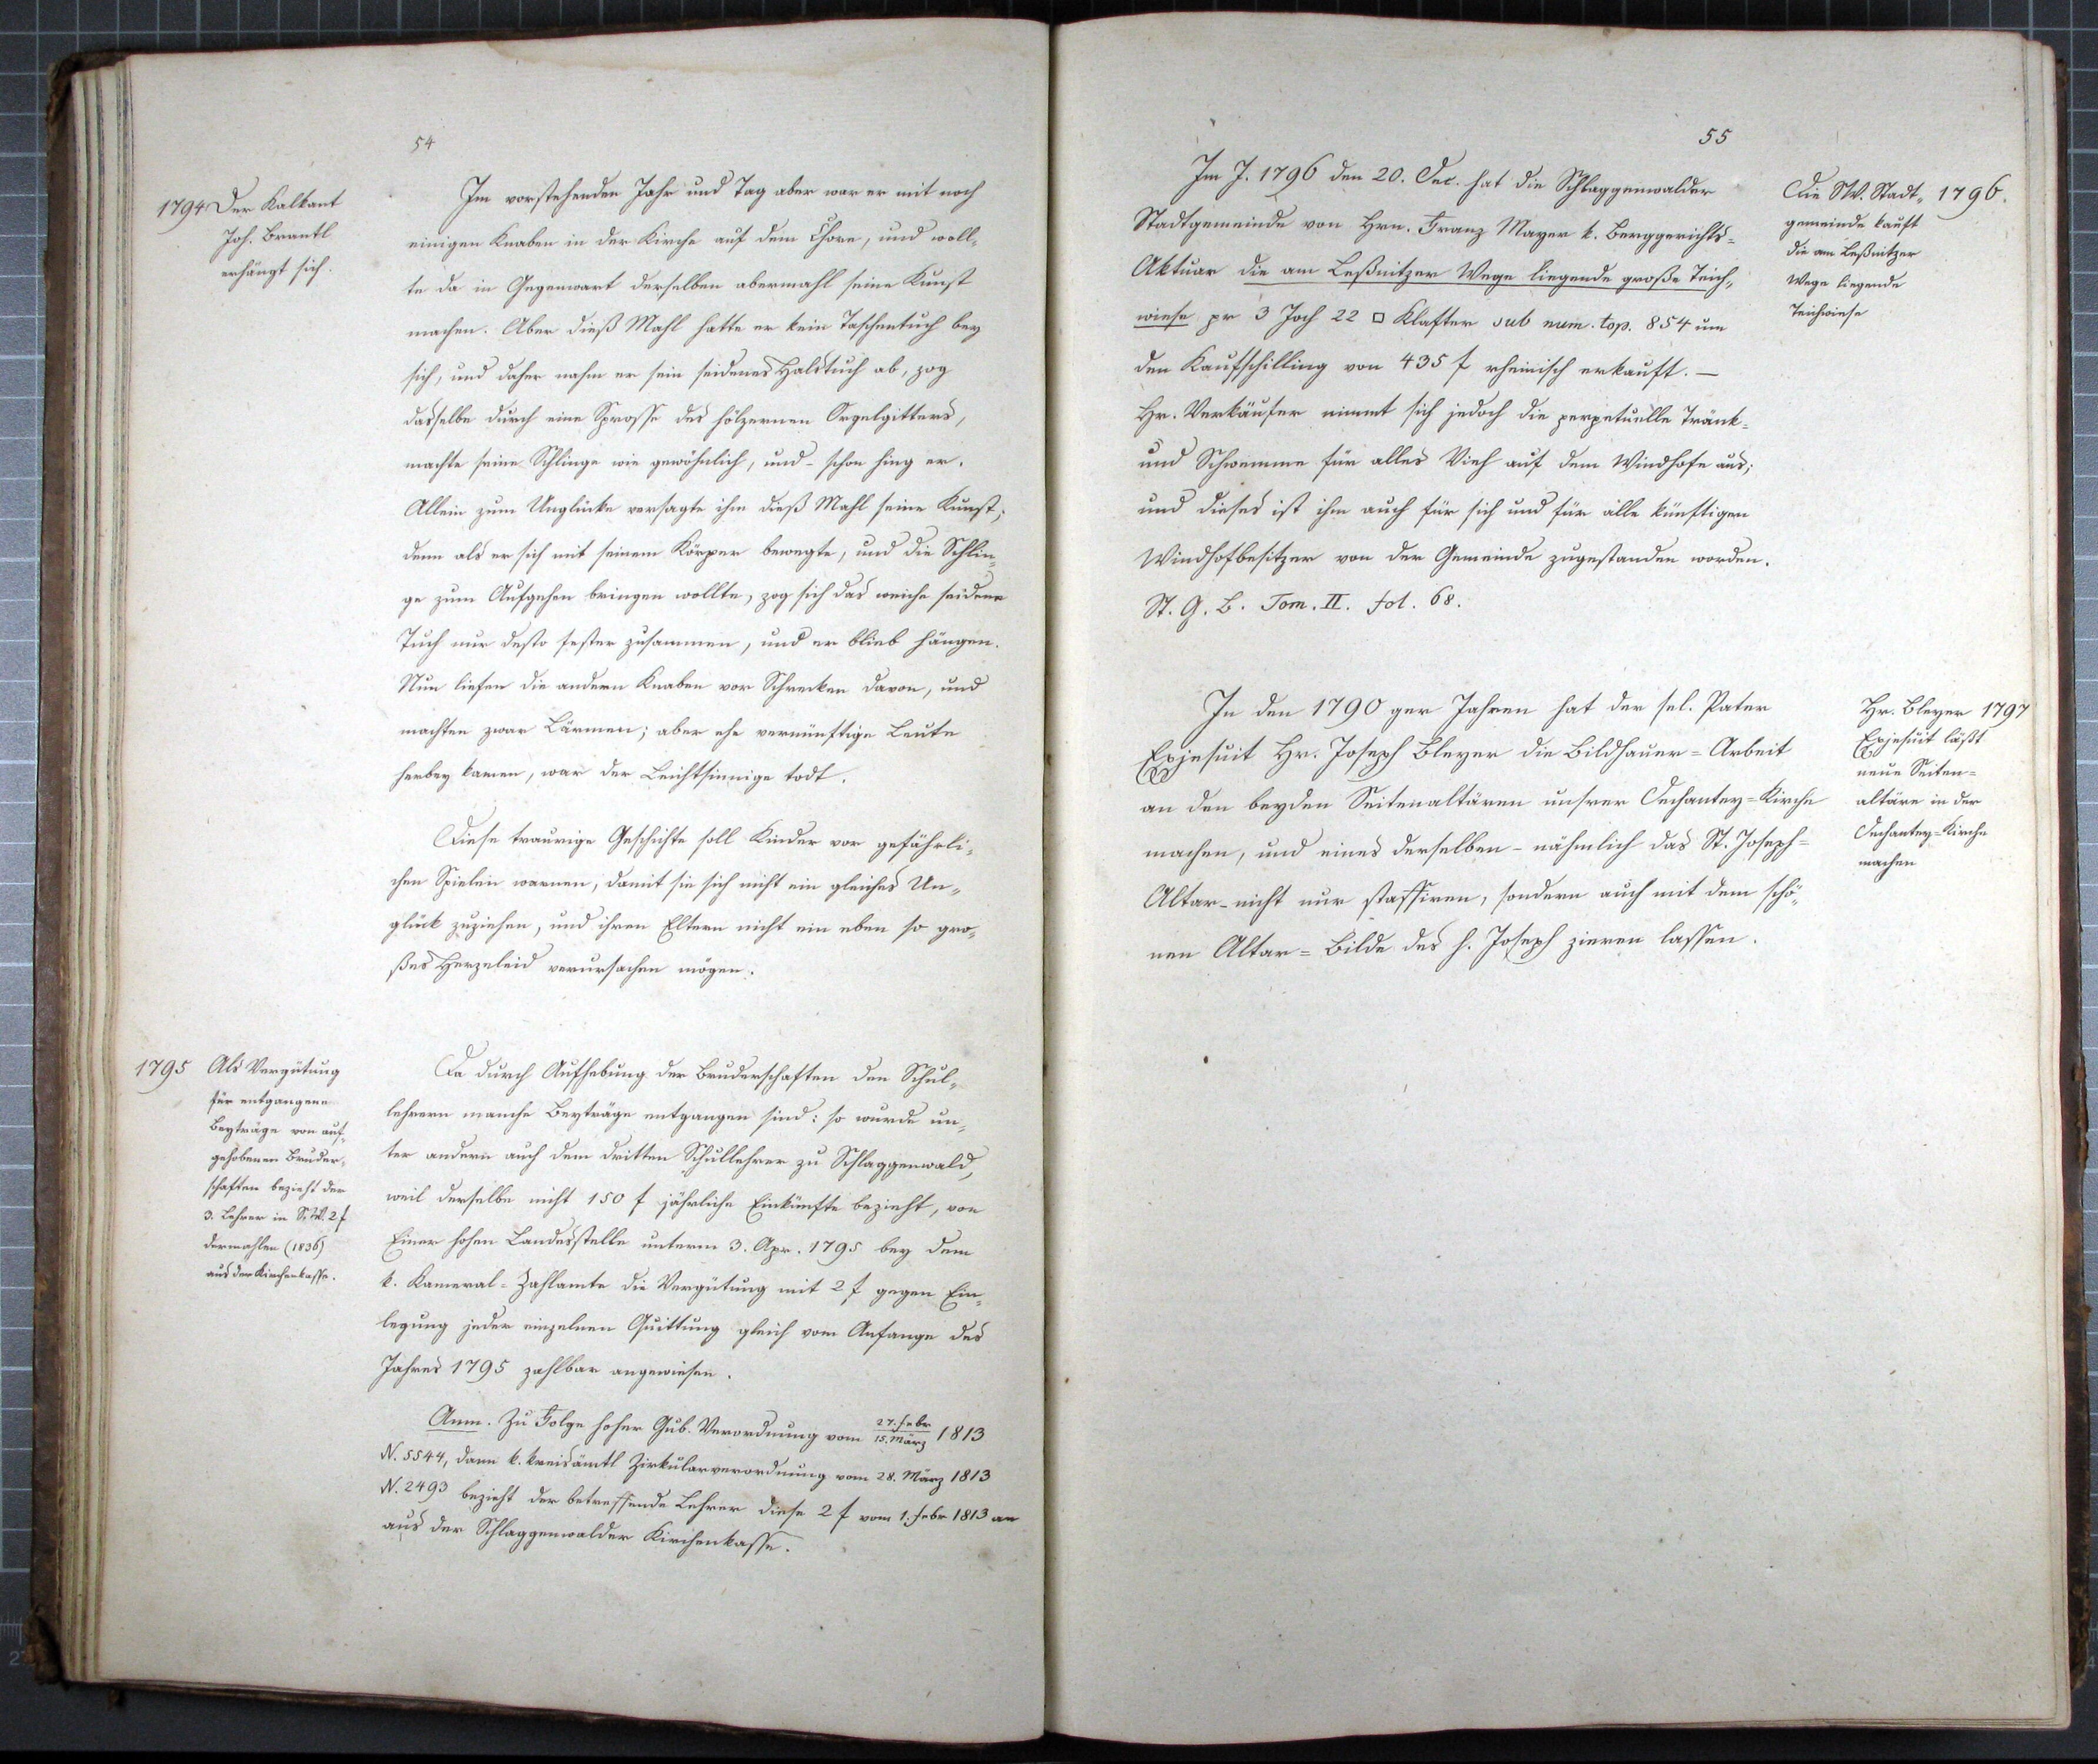 54
1794 Der Kalkant
Joh. Brantl
erhängt sich.
Im vorstehenden Jahr und Tag aber war er mit noch
einigen Knaben in der Kirche auf dem Chore, und woll„
te da in Gegenwart derselben abermahl seine Kunst
machen. Aber dieß Mahl hatte er kein Taschentuch bey
sich, und daher nahm er sein seidenes Halstuch ab, zog
dasselbe durch eine Sprosse des hölzernen Orgelgitters,
machte seine Schlinge wie gewöhnlich, und - schon hing er.
Allein zum Unglücke versagte ihm dieß Mahl seine Kunst;
denn als er sich mit seinem Körper bewegte, und die Schlin„
ge zum Aufgehen bringen wollte, zog sich das weiche seidene
Tuch nur desto fester zusammen, und er blieb hängen.
Nun liefen die andern Knaben vor Schrecken davon, und
machten zwar Lärmen; aber ehe vernünftige Leute
herbey kamen, war der Leichtsinnige todt.
Diese traurige Geschichte soll Kinder vor gefährli„
chen Spielen warnen, damit sie sich nicht ein gleiches Un„
glück zuziehen, und ihren Eltern nicht ein eben so gro„
ßes Herzeleid verursachen mögen.
1795 Als Vergütung
für entgangene
Beyträge von auf„
gehobenen Bruder„
schaften bezieht der
3. Lehrer in S.W. 2 f
dermahlen (1836)
aus der Kirchenkasse.
Da durch Aufhebung der Bruderschaften den Schul„
lehrern manche Beyträge entgangen sind: so wurde un„
ter andern auch dem dritten Schullehrer zu Schlaggenwald,
weil derselbe nicht 150 f jährliche Einkünfte bezieht, von
Einer hohen Landesstelle unterm 3. Apr. 1795 bey dem
k. Kameral-Zahlamte die Vergütung mit 2 f gegen Ein„
legung jeder einzelnen Quittung gleich vom Anfange des
Jahres 1795 zahlbar angewiesen.
Anm. Zu Folge hoher Gub. Verordnung vom 27. Febr / 15. März 1813
N. 5544, dann k. kreisämtl Zirkularverordnung vom 28. März 1813
N. 2493 bezieht der betreffende Lehrer diese 2 f vom 1. Febr 1813 an
aus der Schlaggenwalder Kirchenkasse.
55
Im J. 1796 den 20. Dec. hat die Schlaggenwalder
Stadtgemeinde von Hrn. Franz Mayer k. Berggerichts=
Aktuar die am Leßnitzer Wege liegende große Teich„
wiese pr 3 Joch 22 □ Klafter sub num. top. 854 um
den Kaufschilling von 435 f rheinisch erkauft. —
Hr. Verkäufer nimmt sich jedoch die perpetuelle Tränk=
und Schwemme für alles Vieh auf dem Windhofe aus;
und dieses ist ihm auch für sich und für alle künftigen
Windhofbesitzer von der Gemeinde zugestanden worden.
St. G. B. Tom. II. fol. 68.
Die SW. Stadt„ 1796.
gemeinde kauft
die am Leßnitzer
Wege liegende
Teichwiese
In den 1790 ger Jahren hat der sel. Pater
Exjesuit Hr. Joseph Bleyer die Bildhauer=Arbeit
an den beyden Seitenaltären unsrer Dechantey=Kirche
machen, und eines derselben - nähmlich das St. Joseph=
Altar - nicht nur staffiren, sondern auch mit dem schö„
nen Altar=Bilde des h. Joseph zieren lassen.
Hr. Bleyer 1797
Exjesuit läßt
neue Seiten=
altäre in der
Dechantey=Kirche
machen